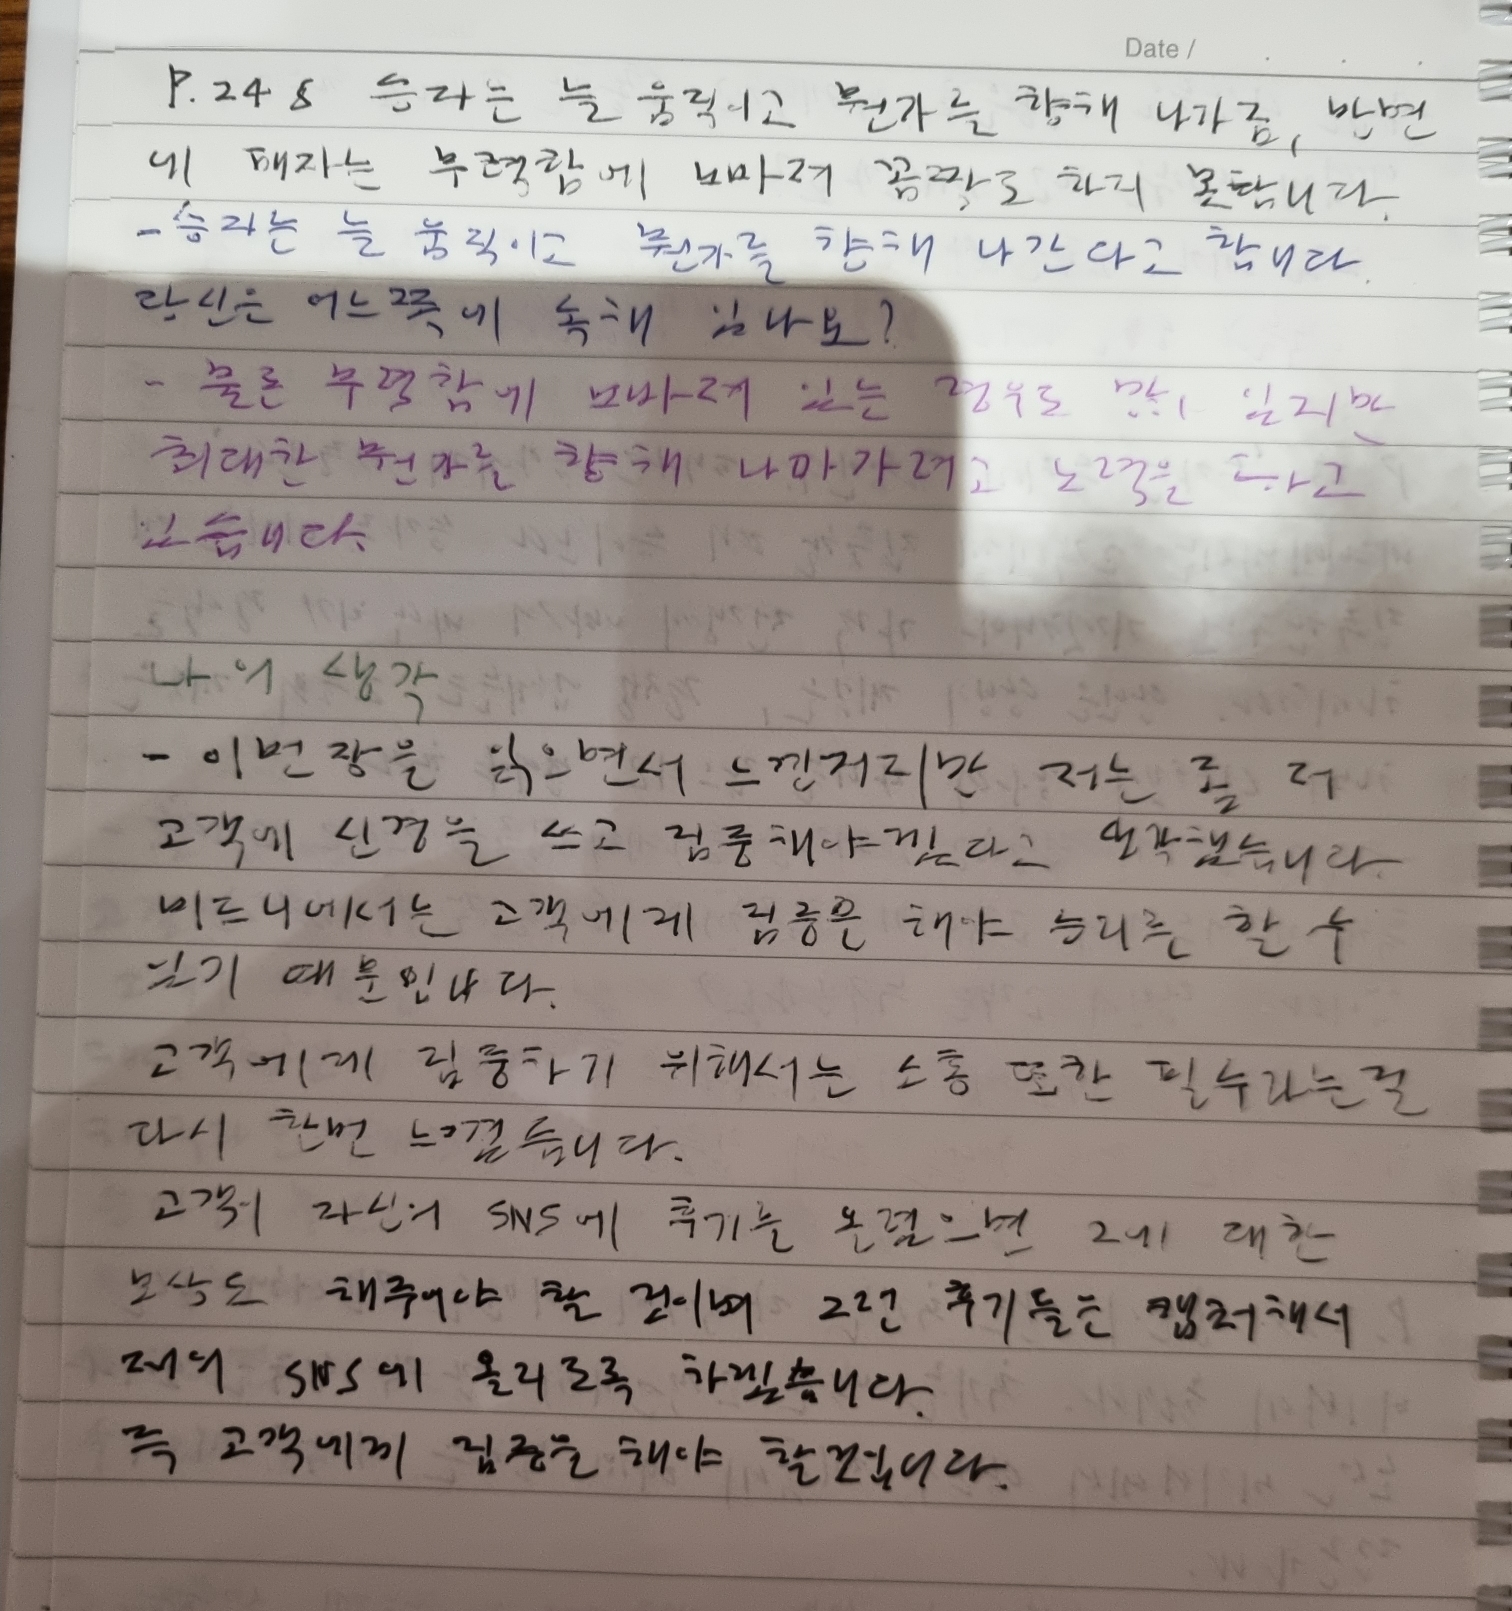 Date /
P.248 승자는 늘 움직이고 뭔가를 향해 나가죠, 반면
에 패자는 무력함에 빠마져 꼼짝도 하지 못합니다.
- 승자는 늘 움직이고 뭔가를 향해 나간다고 합니다
당신은 어느쪽에 속해 있나요?
- 물론 무력함에 빠마져 있는 경우도 많이 있지만
최대한 뭔가를 향해 나아가려고 노력을 하고
있습니다.
나의 생각
- 이번장을 읽으면서 느낀거지만 저는 좀 더
고객에 신경을 쓰고 집중해야겠다고 생각했습니다.
비즈니에서는 고객에게 집중을 해야 승리를 할 수
있기 때문입니다.
고객에게 집중하기 위해서는 소통 또한 필수라는걸
다시 한번 느꼈습니다.
고객이 자신의 SNS에 후기를 올렸으면 그에 대한
보상도 해주어야 할 것이며 그런 후기들은 캡처해서
저의 SNS에 올리도록 하겠습니다.
즉 고객에게 집중을 해야 할겁니다.